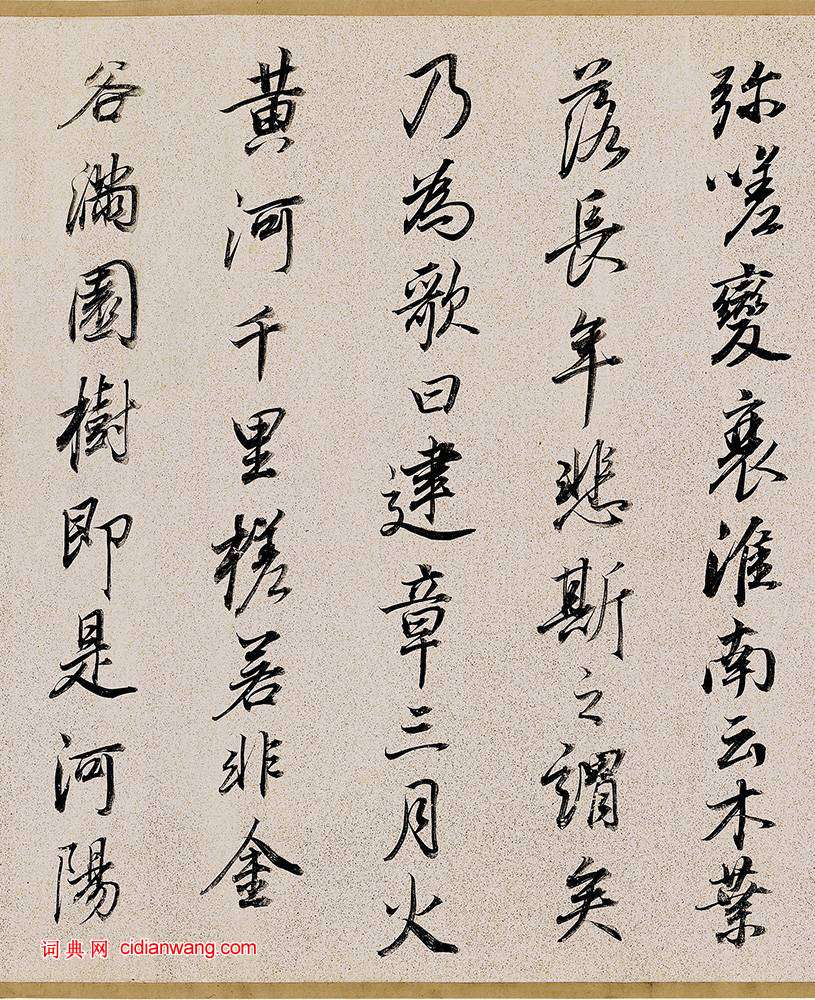 弥嗟變衰淮南云木葉
落長年悲斯之謂矣
乃為歌曰建章三月火
黃河千里槎若非金
谷滿園樹即是河陽
词典网 cidianwang.com